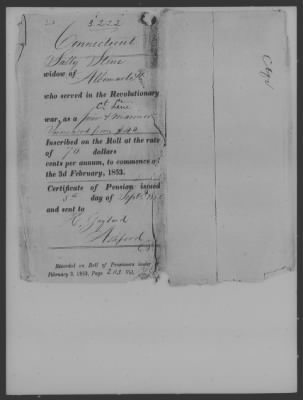 3222
Connecticut
Sally Stine
widow of Albemarle
who served in the Revolutionary
Ct Line
war, as a
Inscribed on the Roll at the rate
of 74 dollars
cents per annum, to commence on
the 3d February, 1853.
Certificate of Pension issued
5th day of Sept
and sent to
H. Gaylord
Ashford
Recorded on Roll of Pensioners under
February 3, 1853, Page 203 Vol.